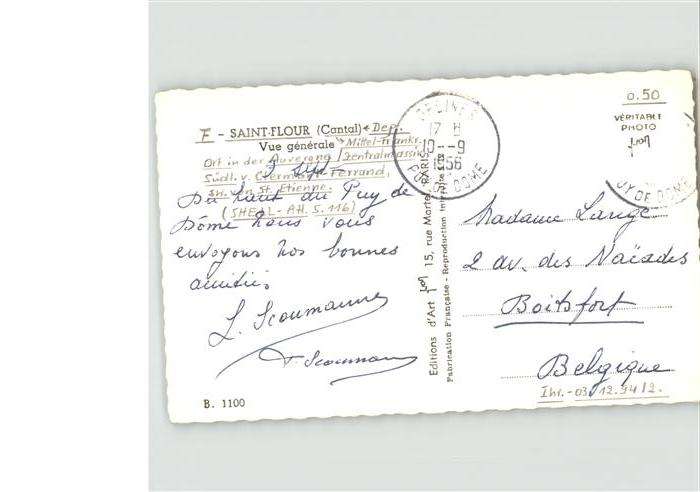 F - SAINT-FLOUR (Cantal) ← Dep.
Vue générale Mittel-Frankr.
Ort in der Auvergne / Zentralmassiv
Südl. v. Clermont-Ferrand,
sw. v. St. Etienne.
(SHELL-Atl. S. 116)
9 Sept
Du haut du Puy de
Dôme nous vous
envoyons nos bonnes
amitiés
L. Scoumanne
B. 1100
Editions d'Art Yvon 15, rue Martel, PARIS
Fabrication Française - Reproduction Interdite
ORCINES
17 H
10 - 9
1956
PUY DE DOME
0.50
VÉRITABLE
PHOTO
Yvon
UY DE DOME
Madame Lange
2 av. des Naïades
Boitsfort
Belgique
Ihr.-03.12.94/2.